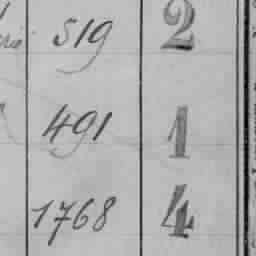 519 2
491 1
1768 4